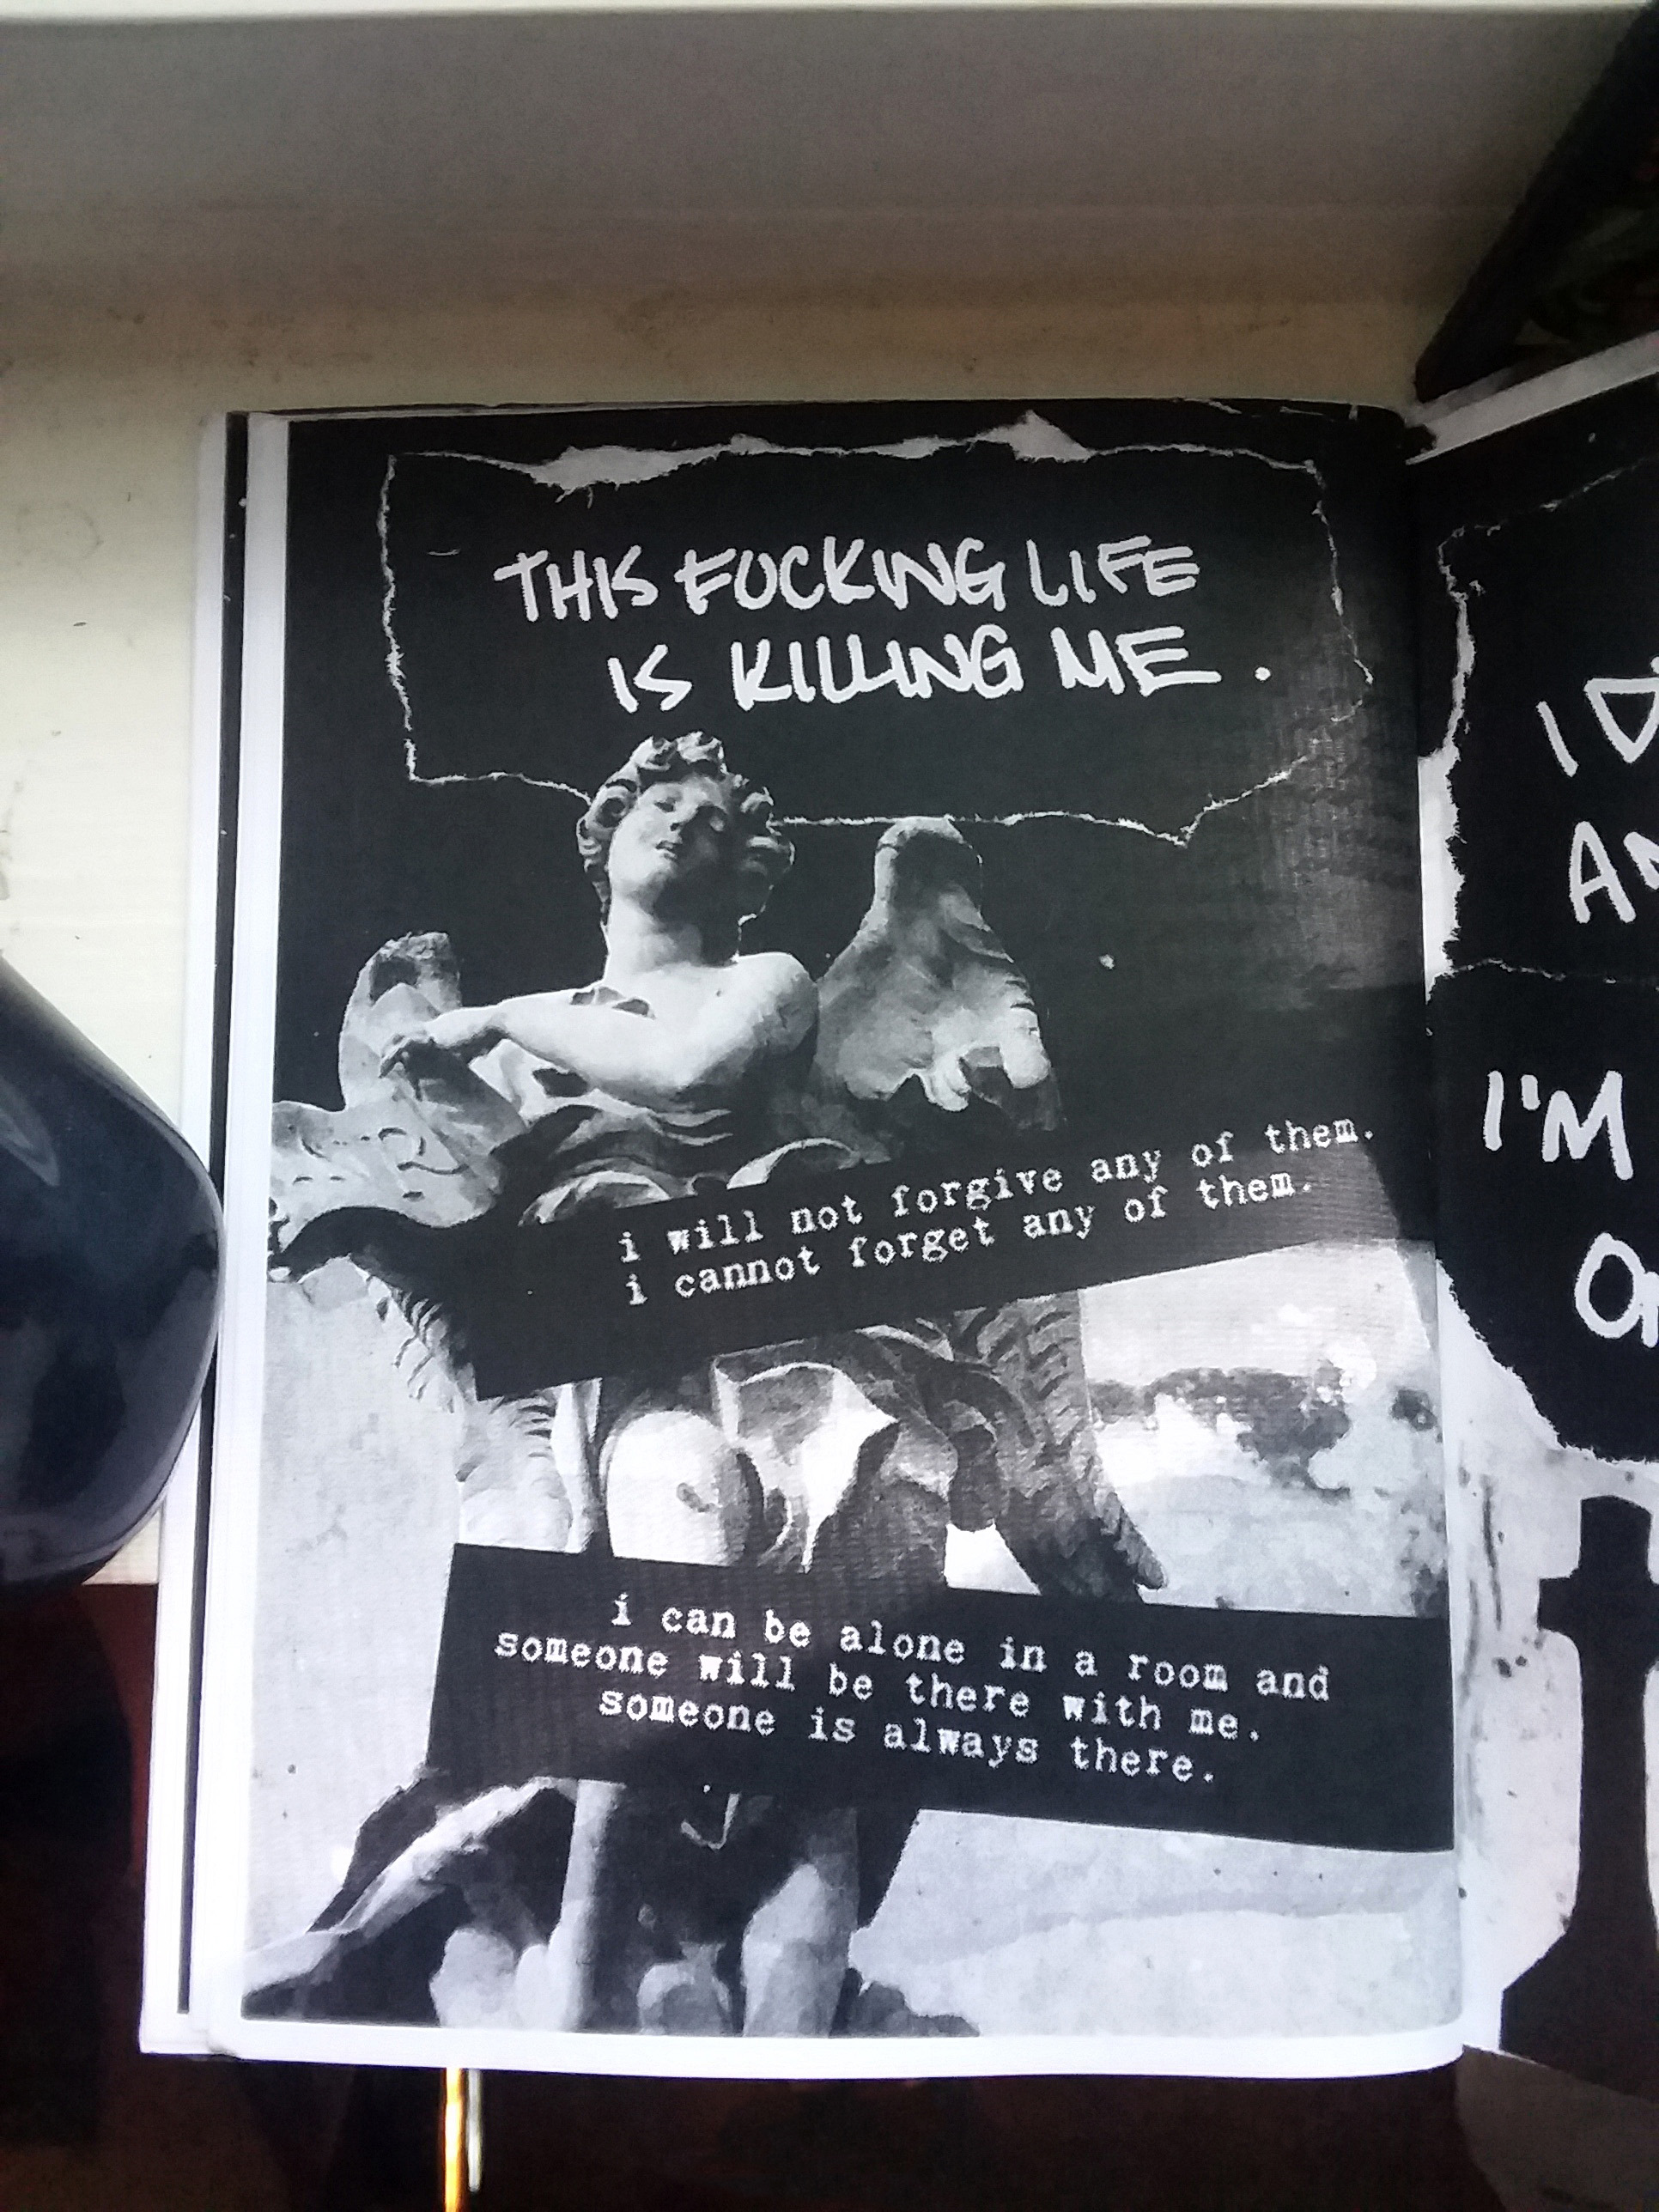 THIS FUCKING LIFE
IS KILLING ME.
i will not forgive any of them.
i cannot forget any of them.
i can be alone in a room and
someone will be there with me.
someone is always there.
I
I'M